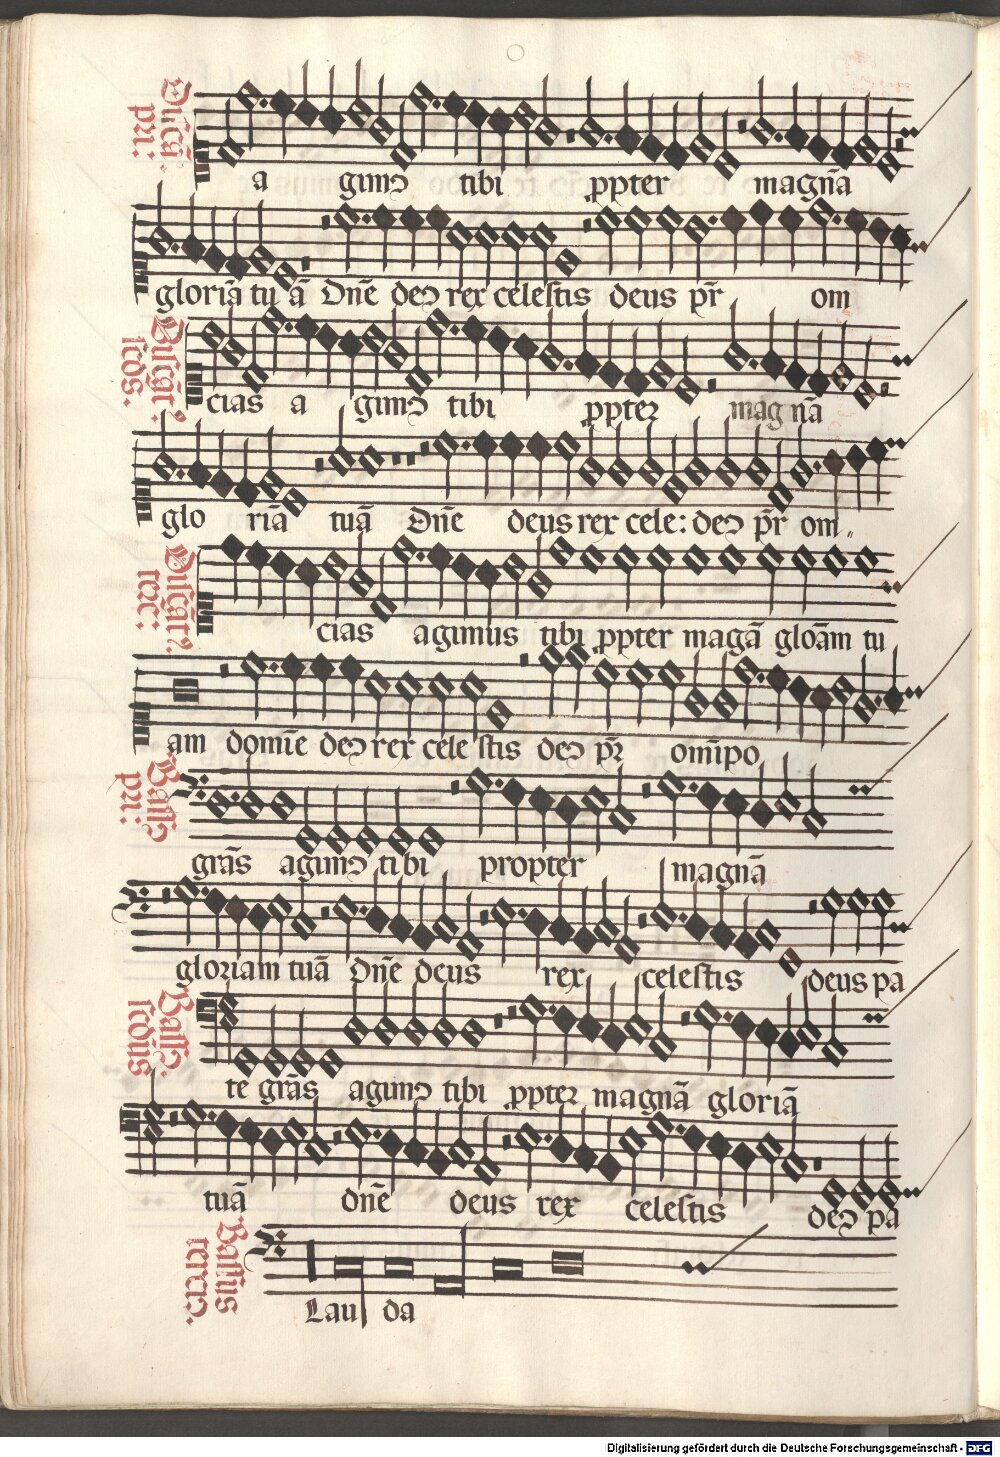 Discā. pri:
a gimꝰ tibi ꝓpter magnā
gloriā tu ā Dnē deꝰ rex celestis deus pr̄ om
Discāt? scds.
cias a gimꝰ tibi ꝓpter magnā
glo riā tuā Dnē deus rex cele: deꝰ pr̄ om
Discāt? terc:
cias agimus tibi ꝓpter magā gloām tu
am domīe deꝰ rex cele stis deꝰ pr̄ omīpo
Bassꝰ pri:
grās agimꝰ tibi propter magnā
gloriam tuā Dnē deus rex celestis deus pa
Bassꝰ: scdūs
te grās agimꝰ tibi ꝓpter magnā gloriā
tuā dnē deus rex celestis deꝰ pa
Bassus terciꝰ.
Lau da
Digitalisierung gefördert durch die Deutsche Forschungsgemeinschaft - DFG